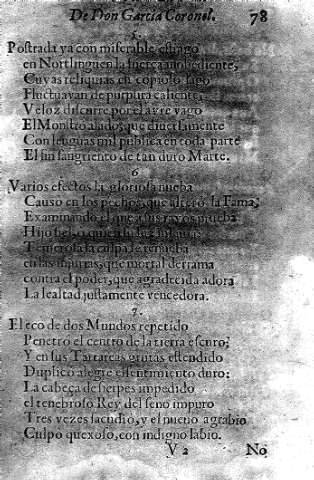 De Don Garcia Coronel. 78
5.
Postrada ya con miserable estrago
en Nortlinguen la fuerça inobediente,
Cuyas reliquias en copioso lago
Fluctuavan de purpura caliente,
Veloz discurre por el ayre vago
El Monstro alado, que diuersamente
Con lenguas mil publica en toda parte
El fin sangriento de tan duro Marte.
6
Varios efectos la gloriosa nueba
Causo en los pechos, que altero la Fama,
Examinando el que a sus rayos prueba
Hijo fiel, o quien
Temerosa la culpa se renueba
en las injurias, que mortal derrama
contra el poder, que agradecida adora
La lealtad justamente vencedora.
7.
El eco de dos Mundos repetido
Penetro el centro de la tierra escuro;
Y en sus Tartareas grutas estendido
Duplicò alegre el sentimiento duro:
La cabeça de sierpes impedido
el tenebroso Rey del seno impuro
Tres vezes sacudio, y el nueuo agrabio
Culpo quexoso, con indigno labio.
V 2 No